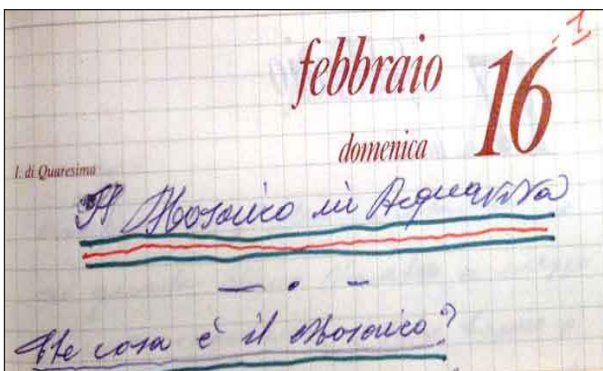 1
febbraio 16
domenica
I. di Quaresima
Il Mosaico in Acquaviva
Che cosa è il Mosaico?